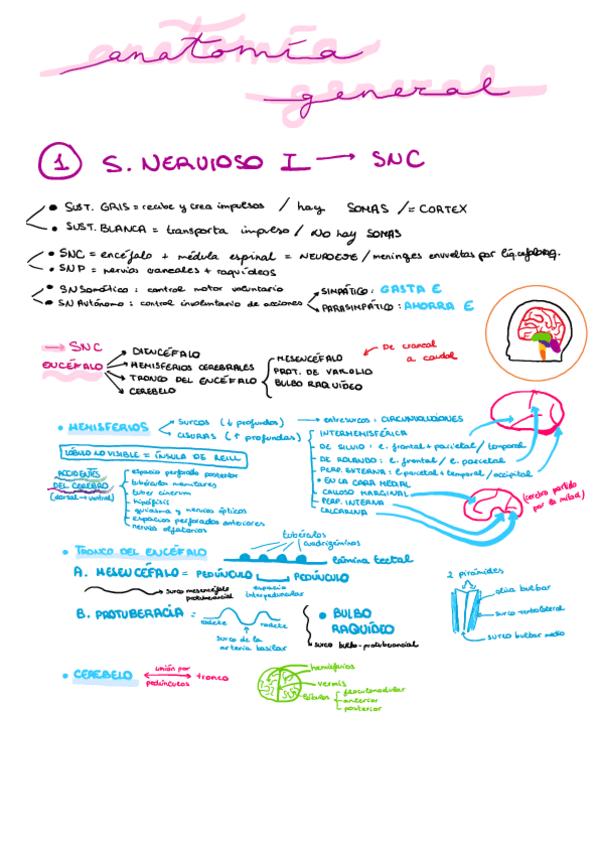 anatomía
general
1 S. NERVIOSO I → SNC
• SUST. GRIS = recibe y crea impulsos / hay SOMAS / = CORTEX
• SUST. BLANCA = transporta impulso / NO hay SOMAS
• SNC = encéfalo + médula espinal = NEUROEJE / meninges envueltas por
• SNP = nervios craneales + raquídeos
• SN Somático : control motor voluntario
• SN Autónomo : control involuntario de acciones
SIMPÁTICO : GASTA E
PARASIMPÁTICO : AHORRA E
→ SNC
ENCÉFALO
DIENCÉFALO
HEMISFERIOS CEREBRALES
TRONCO DEL ENCÉFALO
CEREBELO
MESENCÉFALO
PROT. DE VAROLIO
BULBO RAQUÍDEO
De craneal
a caudal
• HEMISFERIOS
SURCOS (↓ profundos)
CISURAS (↑ profundas)
entre surcos : CIRCUNVOLUCIONES
INTERHEMISFÉRICA
DE SILVIO : e. frontal + parietal / temporal
DE ROLANDO : e. frontal / e. parietal
PERP. EXTERNA : e. parietal + temporal / occipital
• EN LA CARA MEDIAL
CALLOSO MARGINAL
PERP. INTERNA
CALCARINA
(cerebro partido
por la mitad)
LÓBULO NO VISIBLE = ÍNSULA DE REILL
ACCIDENTES
DEL CEREBRO
(dorsal → ventral)
espacio perforado posterior
tubérculos mamilares
tuber cinerum
hipófisis
quiasma y nervios ópticos
espacios perforados anteriores
nervios olfatorios
• TRONCO DEL ENCÉFALO
tubérculos
cuadrigéminos
lámina tectal
A. MESENCÉFALO = PEDÚNCULO PEDÚNCULO
surco mesencéfalo
protuberancial
espacio
interpeduncular
B. PROTUBERACIA =
rodete rodete
surco de la
arteria basilar
• BULBO
RAQUÍDEO
surco bulbo-protuberancial
2 pirámides
oliva bulbar
surco ventrolateral
surco bulbar medio
• CEREBELO
unión por
pedúnculos
tronco
hemisferios
vermis
lóbulos
floculonodular
anterior
posterior